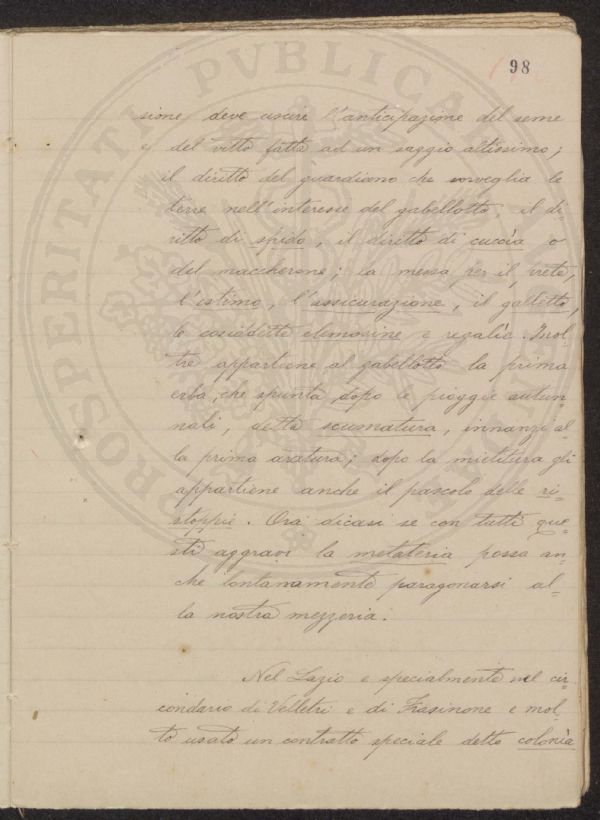 98
sione deve uscire l'anticipazione del seme
e del vitto fatta ad un saggio altissimo;
il diritto del guardiano che sorveglia le
terre nell'interesse del gabellotto, il di
ritto di spido, il diritto di cuccìa o
del maccherone; la messa per il prete,
l'estimo, l'assicurazione, il galletto,
le cosiddette elemosine e regalie. Inol
tre appartiene al gabellotto la prima
erba, che spunta dopo le pioggie autun
nali, detta scumatura, innanzi al=
la prima aratura; dopo la mietitura gli
appartiene anche il pascolo delle ri=
stoppie. Ora dicasi se con tutti que=
sti aggravi la metateria possa an=
che lontanamente paragonarsi al=
la nostra mezzeria.
Nel Lazio e specialmente nel cir=
condario di Velletri e di Frasinone e mol=
to usato un contratto speciale detto colonìa
PROSPERITATI PVBLICAE